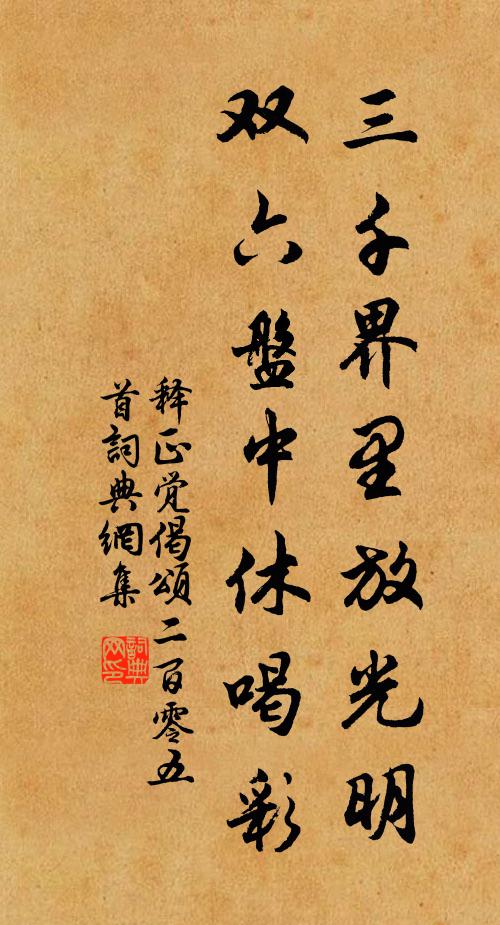 三千界里放光明
双六盤中休喝彩
释正觉偈頌二百零五
首詞典網集
詞典
网印